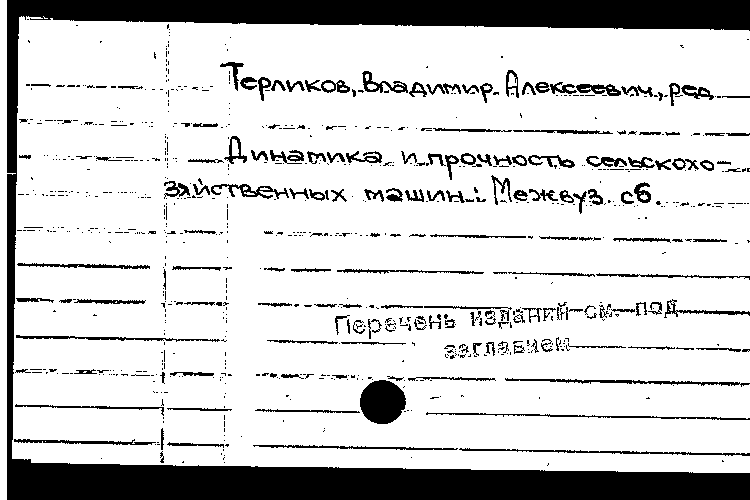 Терликов, Владимир Алексеевич, ред.
Динамика и прочность сельскохо-
зяйственных машин : Межвуз. сб.
Перечень изданий см. под
заглавием